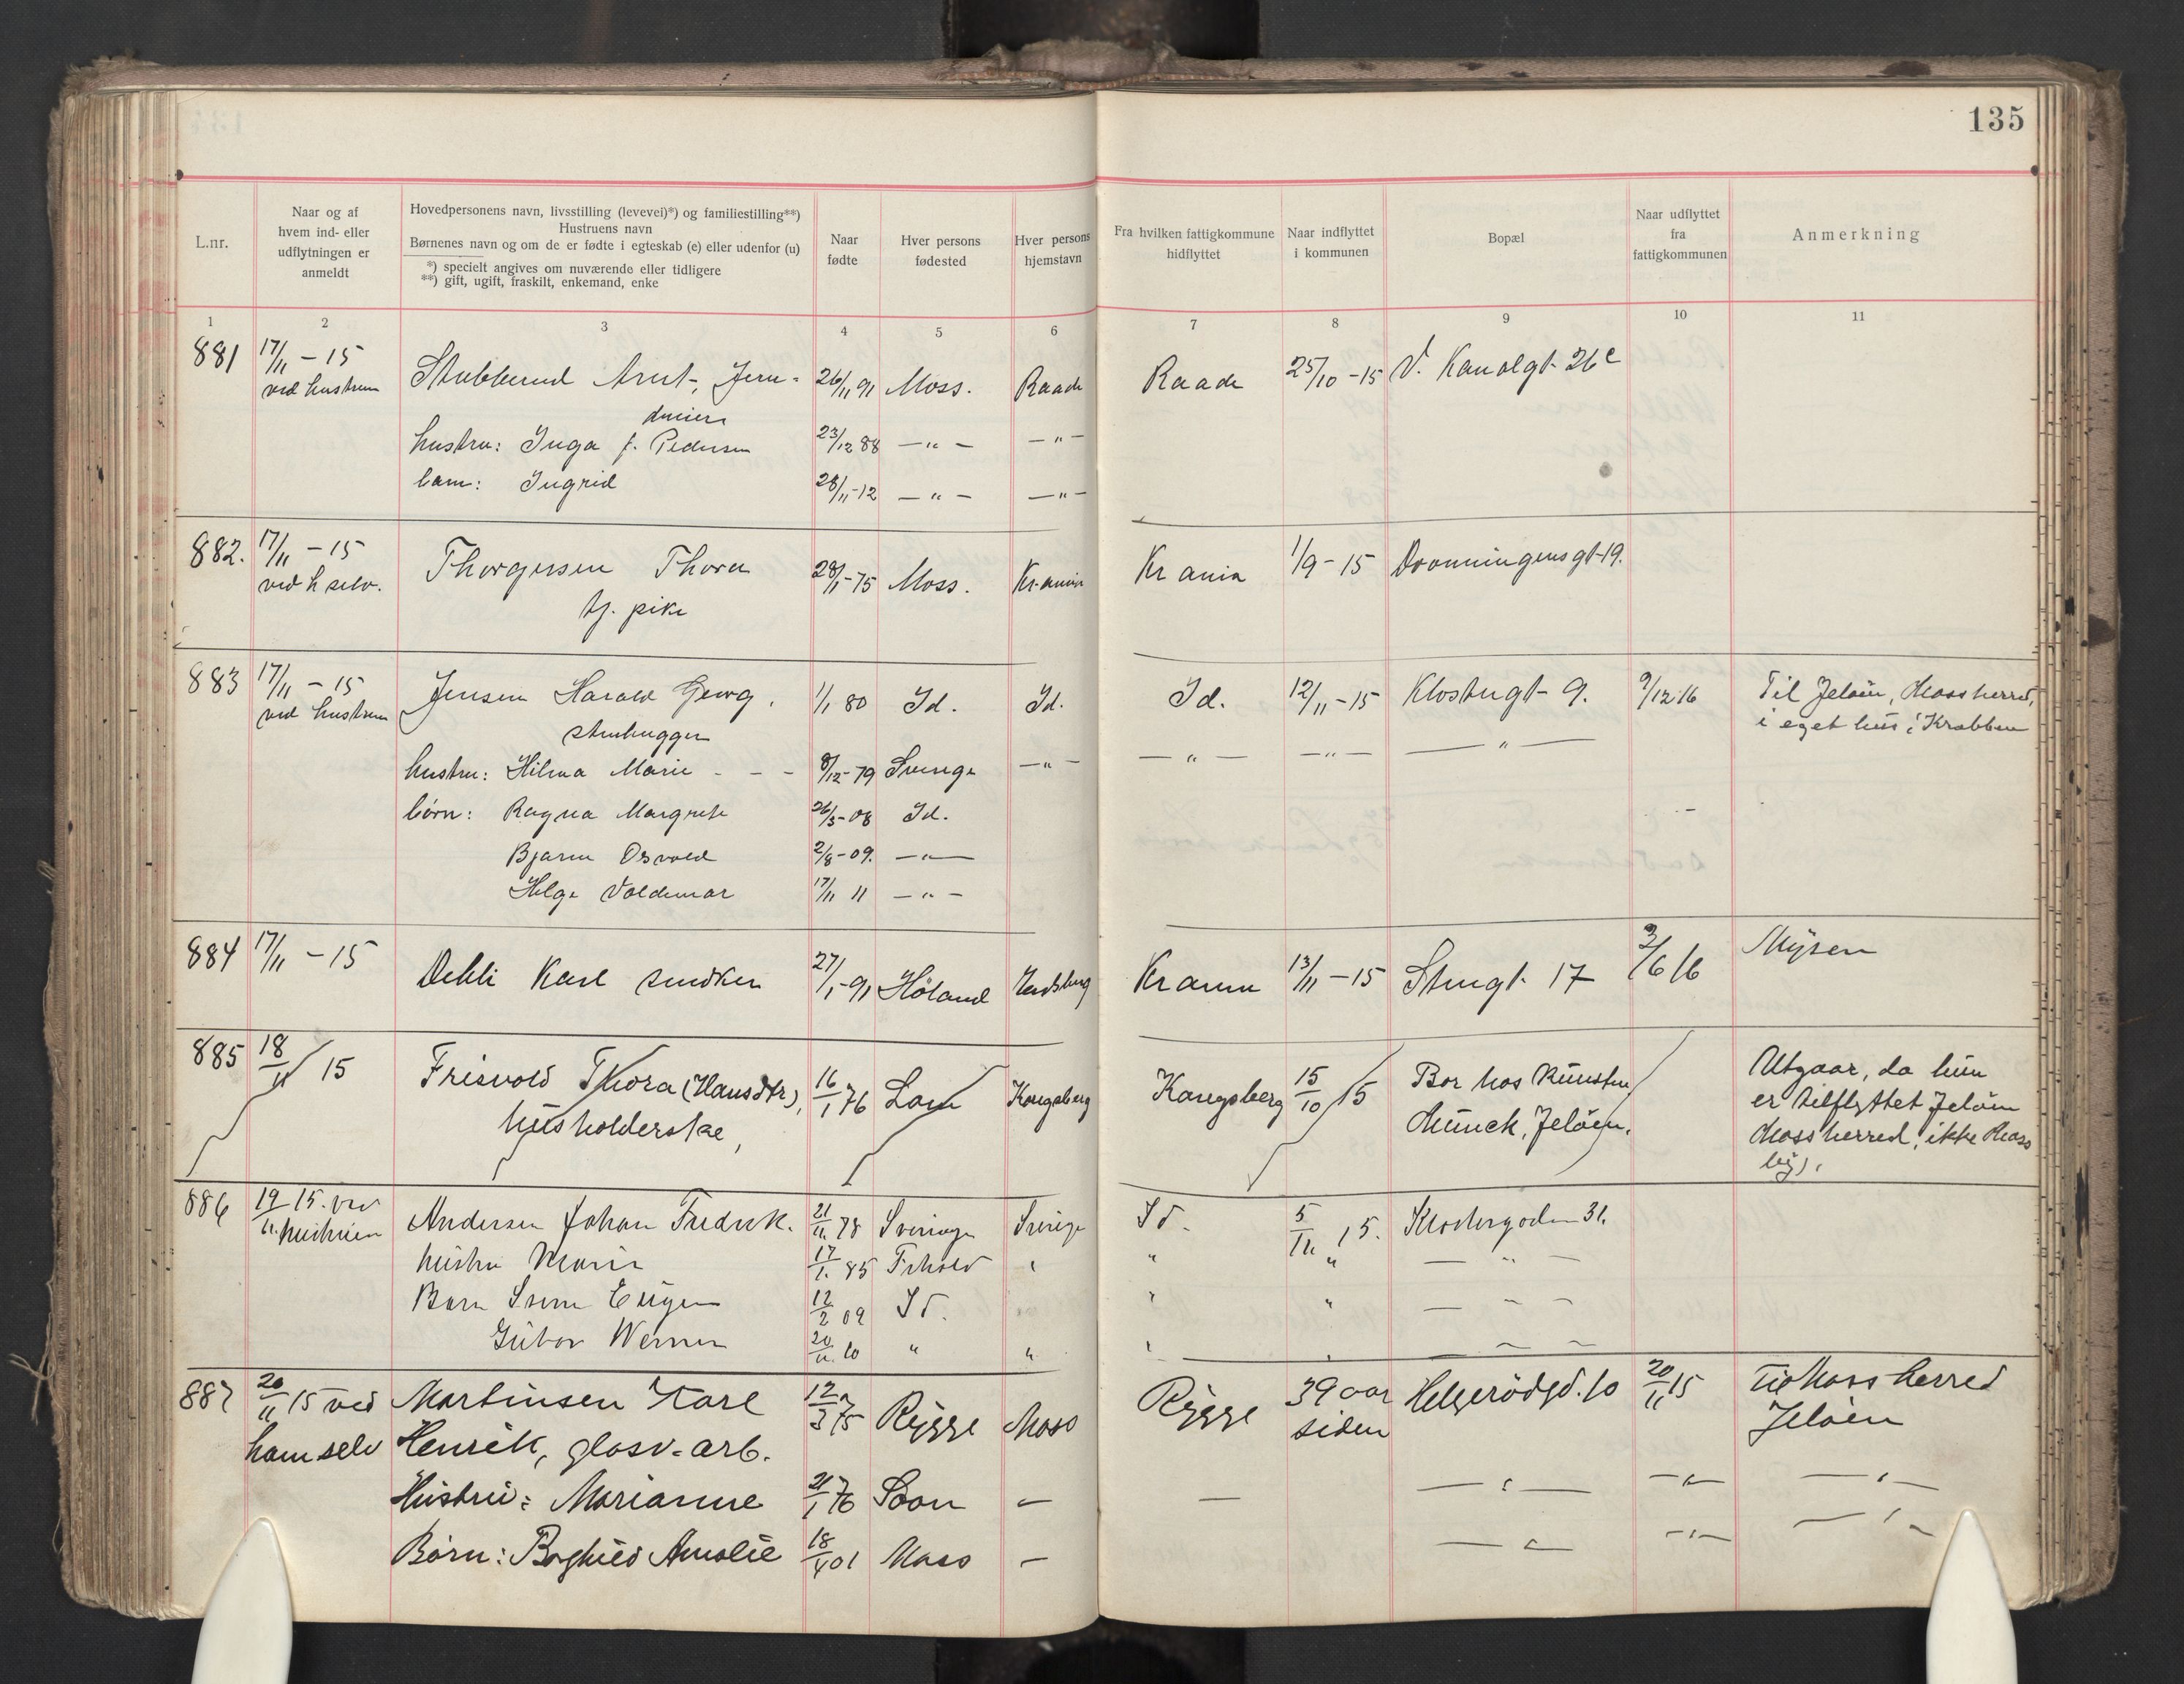 135
L.nr.
Naar og af
hvem ind- eller
udflytningen er
anmeldt
Hovedpersonens navn, livsstilling (levevei)*) og familiestilling**)
Hustruens navn
Børnenes navn og om de er fødte i egteskab (e) eller udenfor (u)
*) specielt angives om nuværende eller tidligere
**) gift, ugift, fraskilt, enkemand, enke
Naar
fødte
Hver persons
fødested
Hver persons
hjemstavn
Fra hvilken fattigkommune
hidflyttet
Naar indflyttet
i kommunen
Bopæl
Naar udflyttet
fra
fattigkommunen
Anmerkning
1 2 3 4 5 6 7 8 9 10 11
881 17/11 - 15 Stubberud Arnt, Jern- 26/11 91 Moss. Raade Raade 25/10 - 15 V. Kanalgt 26 c
ved hustruen
dreier
hustru: Inga f. Pedersen 23/12 88 — " — — " —
barn: Ingrid 28/11 - 12 — " — — " —
882. 17/11 - 15 Thorgersen Thora 28/1 - 75 Moss. Kr.ania Kr ania 1/9 - 15 Dronningensgt 19.
ved h selv.
tj. pike
883 17/11 - 15 Jensen Harald Georg, 1/1 80 Id. Id. Id. 12/11 - 15 Klostergt 9. 9/12 16 Til Jeløen, Mossherred,
ved hustruen stenhugger i eget hus i Krabben
hustru: Hilma Marie - - - 8/12 - 79 Sverige — " — — " — — " — — " —
børn: Ragna Margrete 26/3 - 08 Id.
Bjarne Osvald 2/8 - 09. — " —
Helge Valdemar 17/11 11 — " —
884 17/11 - 15 Dehli Karl snedker 27/1 - 91 Høland Kr ania 13/11 - 15 Stengt 17 2/6 16 Mysen
885 18/11 15 Frisvold Thora (Hansdtr), 16/1 76 Lom Kongsberg Kongsberg 15/10 15 Bor hos Kunstm. Utgaar, da hun
husholderske, Munck, Jeløen. er tilflyttet Jeløen
Mossherred, ikke Moss
by).
886 19/11 15. ved Andersen Johan Fredrik. 21/11 78 Sverige Sverige Id. 5/11 15. Klostergaden 31.
hustruen hustru Marie 17/1. 85 Frhald " " " — " —
Barn Svern Eugen 12/2 09 Id. " " — " —
Gubor Werner 20/11. 10 " " " — " —
887 20/11 15 ved Martinsen Karl 12/3 75 Rygge Moss Rygge 39 aar Helgerødgd. 10 20/11 15 Til Moss herred
ham selv Henrik, glasv.-arb. siden Jeløen
Hustru: Marianne 21/1 76 Soon — — — " — — " — — " —
Børn: Borghild Amalie 18/4 01 Moss — — " — — " — — " —